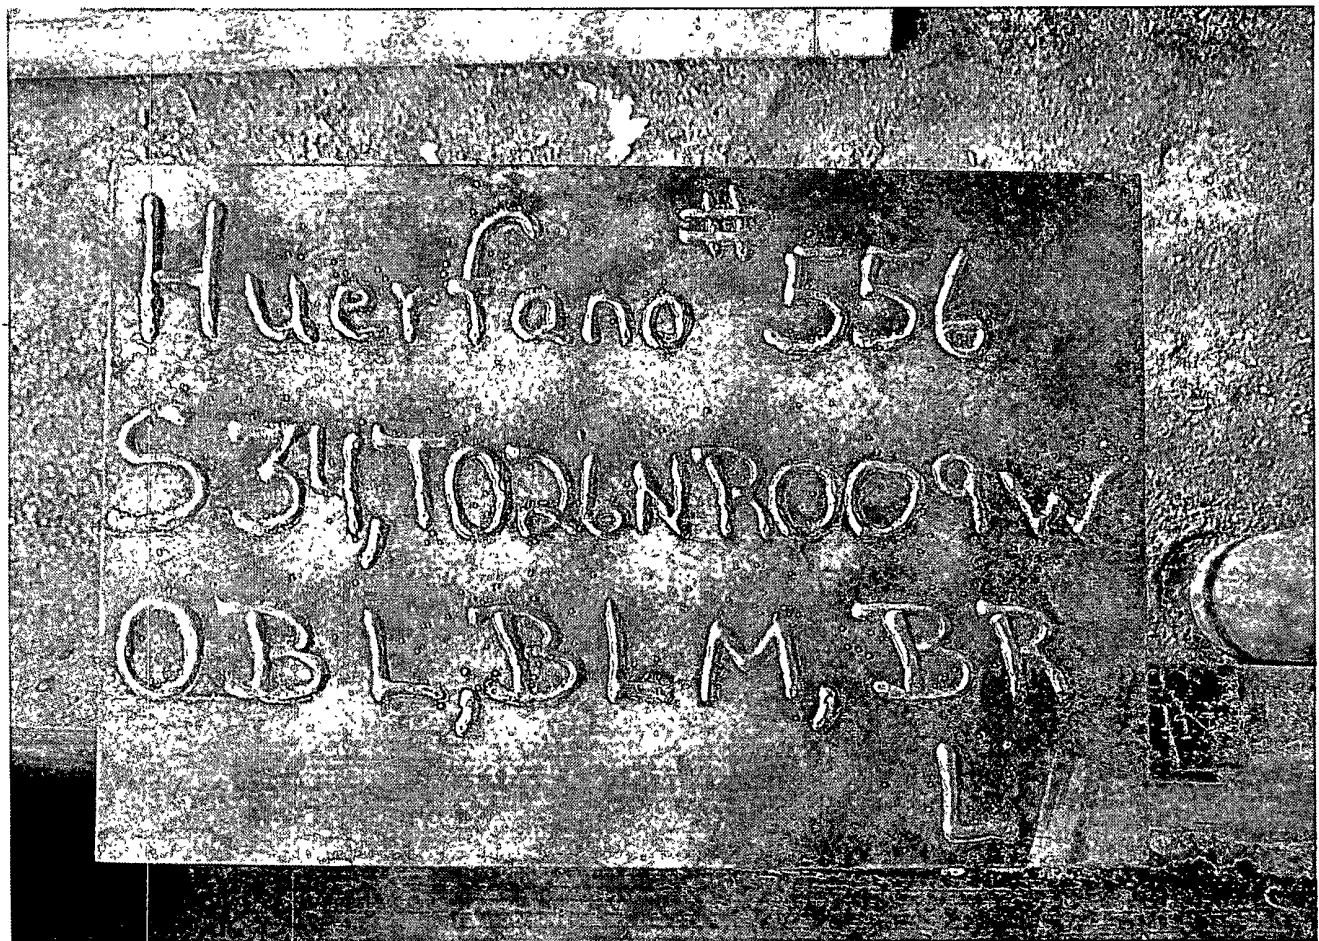 Huerfano # 556
S 34, T026N R009W
OBL, BLM, BR
L